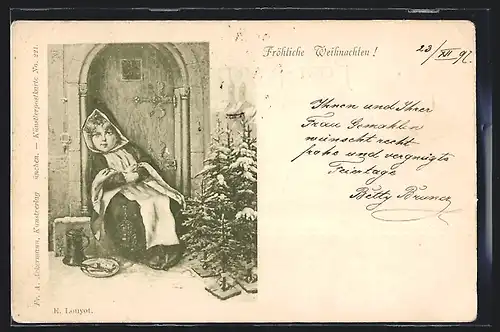 Fröhliche Weihnachten!
23/XII 97
Ihnen und Ihrer
Frau Gemahlin
wünscht recht
frohe und vergnügte
Feiertage
Betty
Fr. A. Ackermann, Kunstverlag — Künstlerpostkarte No. 221.
E. Louyot.